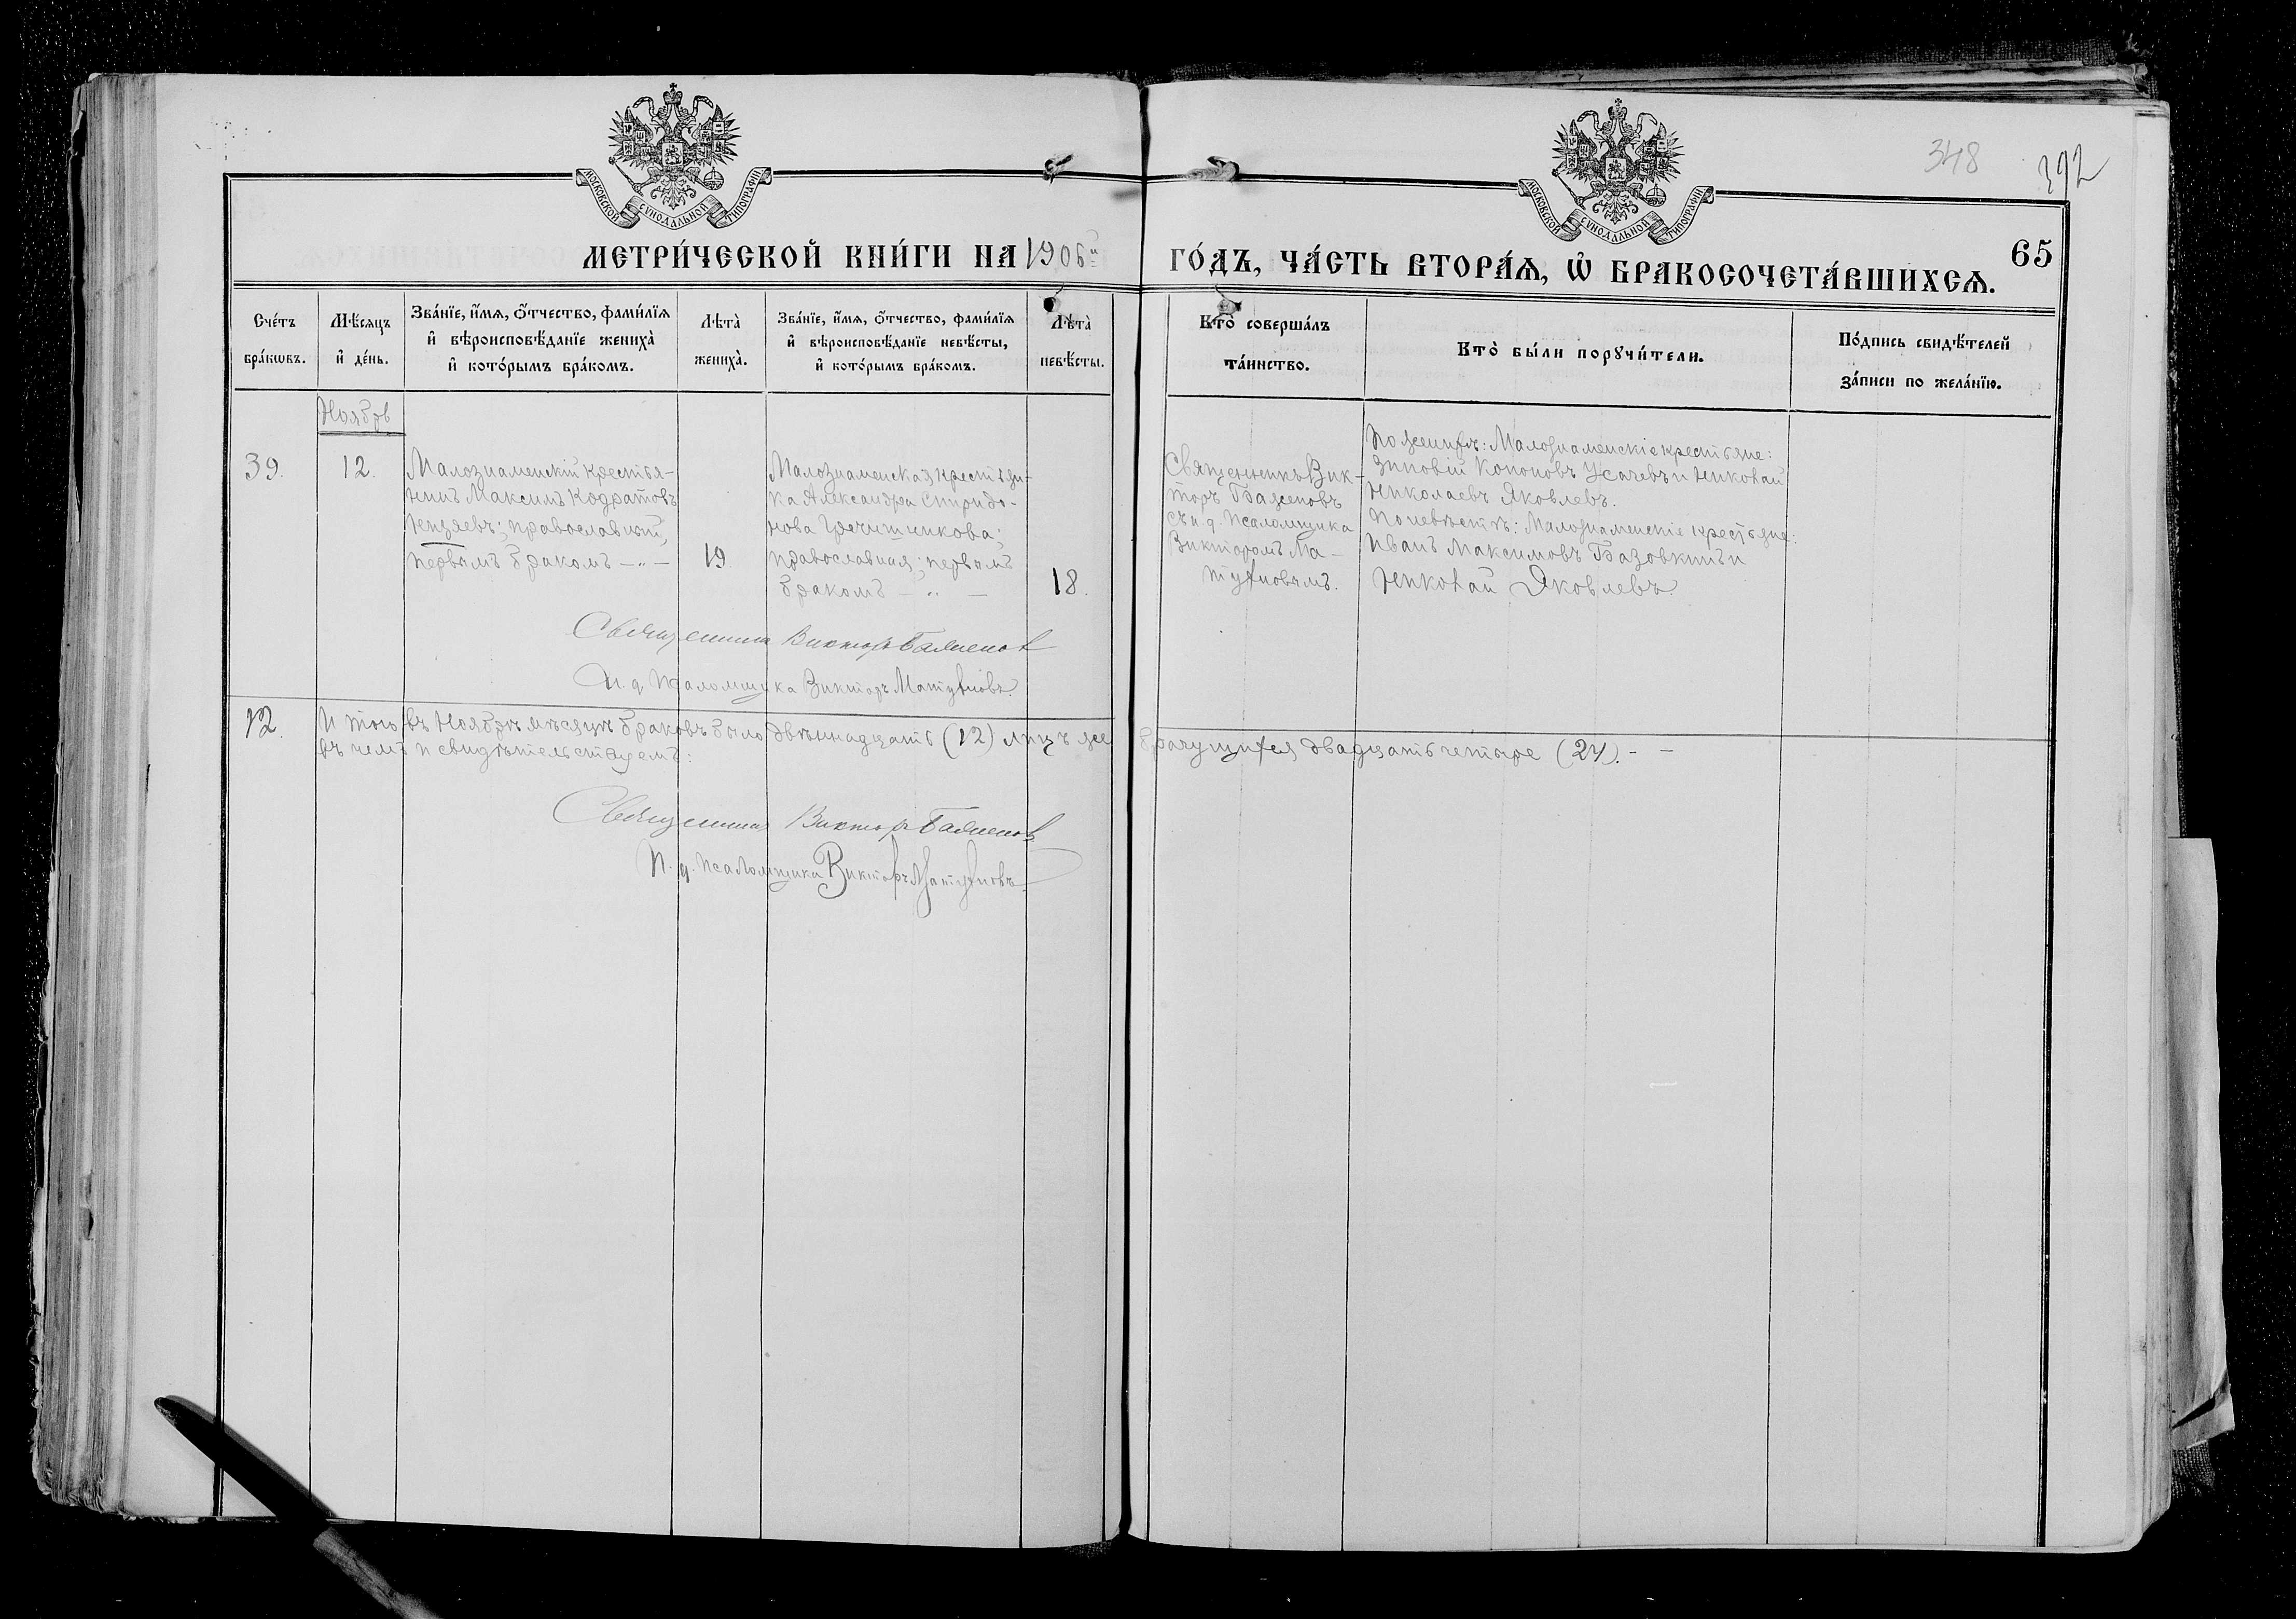 МОСКОВСКОЙ СУНОДАЛЬНОЙ ТИПОГРАФІИ
МОСКОВСКОЙ СУНОДАЛЬНОЙ ТИПОГРАФІИ
348
392
МЕТРИ́ЧЕСКОЙ КНИ́ГИ НА 1906й
ГО́ДЪ, ЧА́СТЬ ВТОРА́Ѧ, Ѡ҆ БРАКОСОЧЕТА́ВШИХСѦ.
65
Сче́тъ
бра́кѡвъ.
Мѣ́сяцъ
и҆ де́нь.
Зва́нїе, и҆́мя, ѻ҆́тчество, фами́лїя
и҆ вѣроисповѣ́данїе жениха̀
и҆ кото́рымъ бра́комъ.
Лѣта̀
жениха̀.
Зва́нїе, и҆́мя, ѻ҆́тчество, фами́лїя
и҆ вѣроисповѣ́данїе невѣ́сты,
и҆ кото́рымъ бра́комъ.
Лѣта̀
невѣ́сты.
Кто̀ соверша́лъ
та́инство.
Кто̀ бы́ли порꙋчи́тели.
По́дпись свидѣ́телей
за́писи по жела́нїю.
Ноябрь
39.
12.
Малознаменскій крестья-
нинъ Максимъ Кодратовъ
православный,
первымъ бракомъ — „ —
19
Малознаменская крестьян-
ка Александра Спиридо-
нова Гречишникова;
православная; первымъ
бракомъ — „ —
18.
Священникъ Вик-
торъ Баженовъ
съ и. д. псаломщика
Викторомъ Ма-
туѣновымъ.
По женихѣ: Малознаменскіе крестьяне:
Зиновій Кононовъ Усачевъ и Николай
Николаевъ Яковлевъ.
По невѣстѣ: Малознаменскіе крестьяне:
Иванъ Максимовъ и
Николай Яковлевъ.
Священникъ Викторъ Баженовъ
И. д. Псаломщика Викторъ
12.
И того въ Ноябрѣ мѣсяцѣ браковъ было двѣннадцать (12) лицъ же брачущихся двадцать четыре (24). — —
въ чемъ и свидѣтельствуемъ:
Священникъ Викторъ Баженовъ
И. д. псаломщика Викторъ